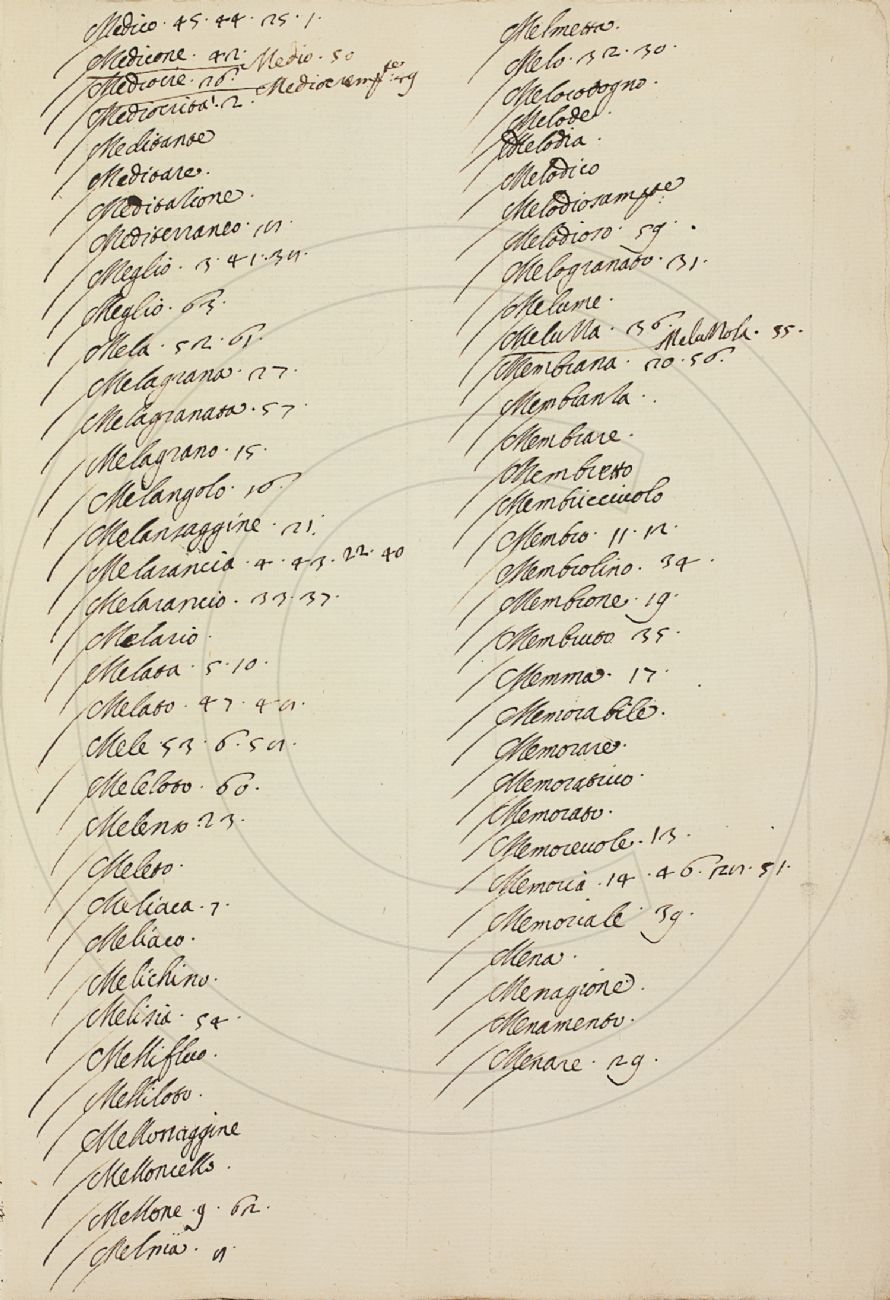 Medico. 45. 44. 25. 1.
Medicone. 42. Medio. 50
Mediocre. 26. Mediocremte. 59
Mediocrità. 2.
Meditante
Meditare.
Meditatione.
Mediterraneo.
Meglio. 3. 41.
Meglio. 63.
Mela. 52. 61.
Melagrana. 27.
Melagranata. 57
Melagrano. 15.
Melangolo. 16
Melansaggine. 21.
Melarancia. 4. 43. 22. 40
Melarancio. 33. 37.
Melario.
Melata. 5. 10.
Melato. 47.
Mele 53. 6.
Meleloto. 60.
Melenso. 23.
Meleto.
Meliaca. 7.
Meliaco.
Melichino.
Melisia. 54.
Mellifluo.
Melliloto.
Mellonaggine
Melloncello.
Mellone. 9. 62.
Melmetta.
Melo. 32. 30.
Melocotogno.
Melode
Melodia.
Melodico
Melodiosamte
Melodioso. 59.
Melogranato. 31.
Melume.
36. 35.
Membrana. 20. 56.
Membranla.
Membrare.
Membretto
Membricciuolo
Membro. 11. 12.
Membrolino. 34.
Membrone. 19.
Membruto 35.
Memma. 17.
Memorabile.
Memorare.
Memorativo.
Memorato.
Memorevole. 13.
Memoria. 14. 46. 51.
Memoriale 39.
Mena.
Menagione.
Menamento.
Menare. 29.